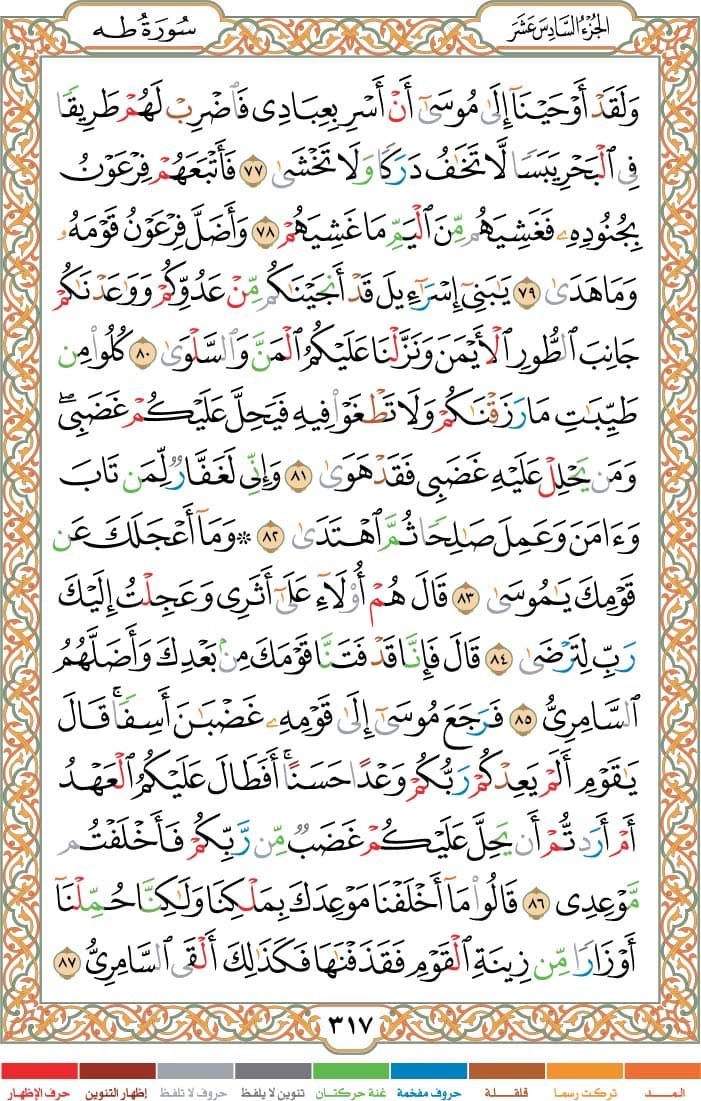 الجزء السادس عشر
سورة طه
وَلَقَدْ أَوْحَيْنَآ إِلَىٰ مُوسَىٰٓ أَنْ أَسْرِ بِعِبَادِى فَٱضْرِبْ لَهُمْ طَرِيقًا
فِى ٱلْبَحْرِ يَبَسًا لَّا تَخَٰفُ دَرَكًا وَلَا تَخْشَىٰ ٧٧ فَأَتْبَعَهُمْ فِرْعَوْنُ
بِجُنُودِهِۦ فَغَشِيَهُم مِّنَ ٱلْيَمِّ مَا غَشِيَهُمْ ٧٨ وَأَضَلَّ فِرْعَوْنُ قَوْمَهُۥ
وَمَا هَدَىٰ ٧٩ يَٰبَنِىٓ إِسْرَٰٓءِيلَ قَدْ أَنجَيْنَٰكُم مِّنْ عَدُوِّكُمْ وَوَٰعَدْنَٰكُمْ
جَانِبَ ٱلطُّورِ ٱلْأَيْمَنَ وَنَزَّلْنَا عَلَيْكُمُ ٱلْمَنَّ وَٱلسَّلْوَىٰ ٨٠ كُلُوا۟ مِن
طَيِّبَٰتِ مَا رَزَقْنَٰكُمْ وَلَا تَطْغَوْا۟ فِيهِ فَيَحِلَّ عَلَيْكُمْ غَضَبِى ۖ
وَمَن يَحْلِلْ عَلَيْهِ غَضَبِى فَقَدْ هَوَىٰ ٨١ وَإِنِّى لَغَفَّارٌ لِّمَن تَابَ
وَءَامَنَ وَعَمِلَ صَٰلِحًا ثُمَّ ٱهْتَدَىٰ ٨٢ ۞ وَمَآ أَعْجَلَكَ عَن
قَوْمِكَ يَٰمُوسَىٰ ٨٣ قَالَ هُمْ أُو۟لَآءِ عَلَىٰٓ أَثَرِى وَعَجِلْتُ إِلَيْكَ
رَبِّ لِتَرْضَىٰ ٨٤ قَالَ فَإِنَّا قَدْ فَتَنَّا قَوْمَكَ مِنۢ بَعْدِكَ وَأَضَلَّهُمُ
ٱلسَّامِرِىُّ ٨٥ فَرَجَعَ مُوسَىٰٓ إِلَىٰ قَوْمِهِۦ غَضْبَٰنَ أَسِفًا ۚ قَالَ
يَٰقَوْمِ أَلَمْ يَعِدْكُمْ رَبُّكُمْ وَعْدًا حَسَنًا ۚ أَفَطَالَ عَلَيْكُمُ ٱلْعَهْدُ
أَمْ أَرَدتُّمْ أَن يَحِلَّ عَلَيْكُمْ غَضَبٌ مِّن رَّبِّكُمْ فَأَخْلَفْتُم
مَّوْعِدِى ٨٦ قَالُوا۟ مَآ أَخْلَفْنَا مَوْعِدَكَ بِمَلْكِنَا وَلَٰكِنَّا حُمِّلْنَآ
أَوْزَارًا مِّن زِينَةِ ٱلْقَوْمِ فَقَذَفْنَٰهَا فَكَذَٰلِكَ أَلْقَى ٱلسَّامِرِىُّ ٨٧
٣١٧
المــد تركت رسما قلقلة حروف مفخمة غنة حركتان تنوين لا يلفظ حروف لا تلفظ إظهار التنوين حرف الإظهار